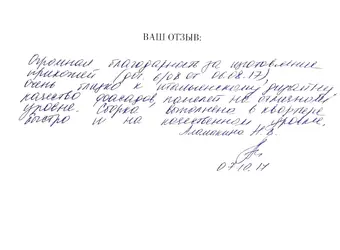 ВАШ ОТЗЫВ:
Огромная благодарность за изготовление
прихожей (дог. 6/08 от 06.08.17),
очень близко к итальянскому
качество фасадов, на отличном
уровне. Сборка выполнена в квартире
быстро и на качественном уровне.
07.10.17